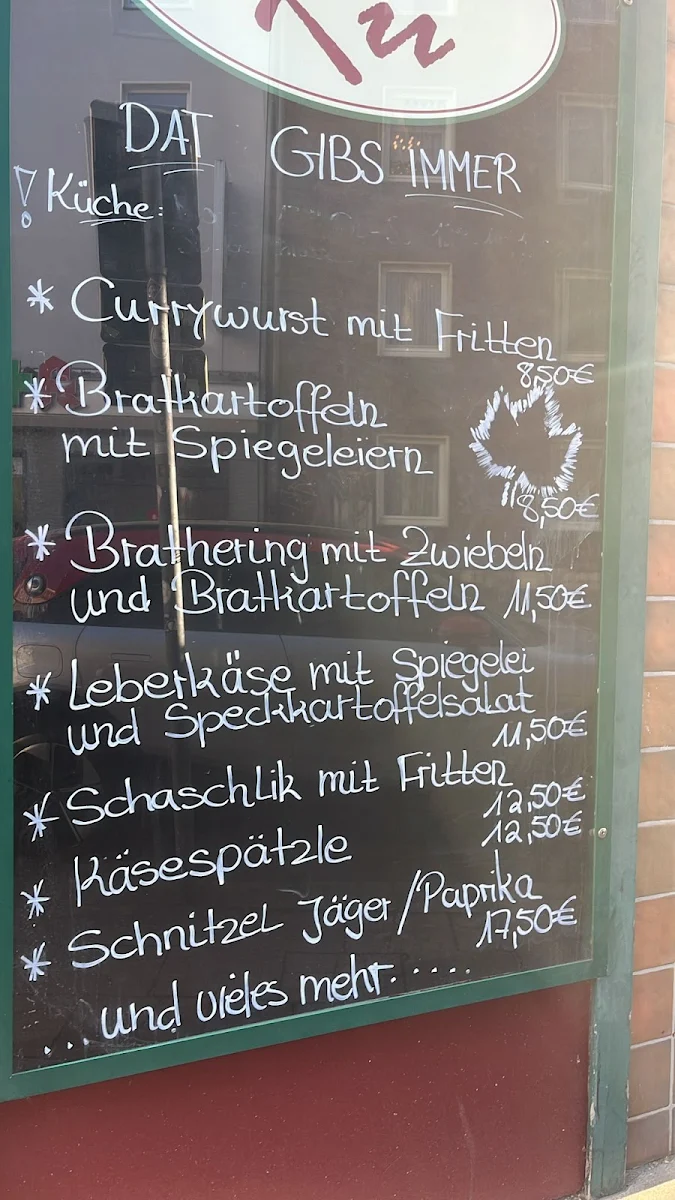 DAT GIBS IMMER
! Küche:
* Currywurst mit Fritten
8,50€
* Bratkartoffeln
mit Spiegeleiern
8,50€
* Brathering mit Zwiebeln
und Bratkartoffeln 11,50€
* Leberkäse mit Spiegelei
und Speckkartoffelsalat
11,50€
* Schaschlik mit Fritten
12,50€
* Käsespätzle
12,50€
* Schnitzel Jäger/Paprika
17,50€
...und vieles mehr.....